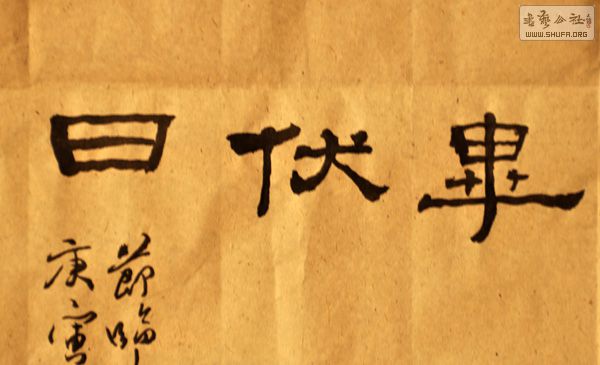 畢伏日
節臨
庚寅
书藝公社
WWW.SHUFA.ORG